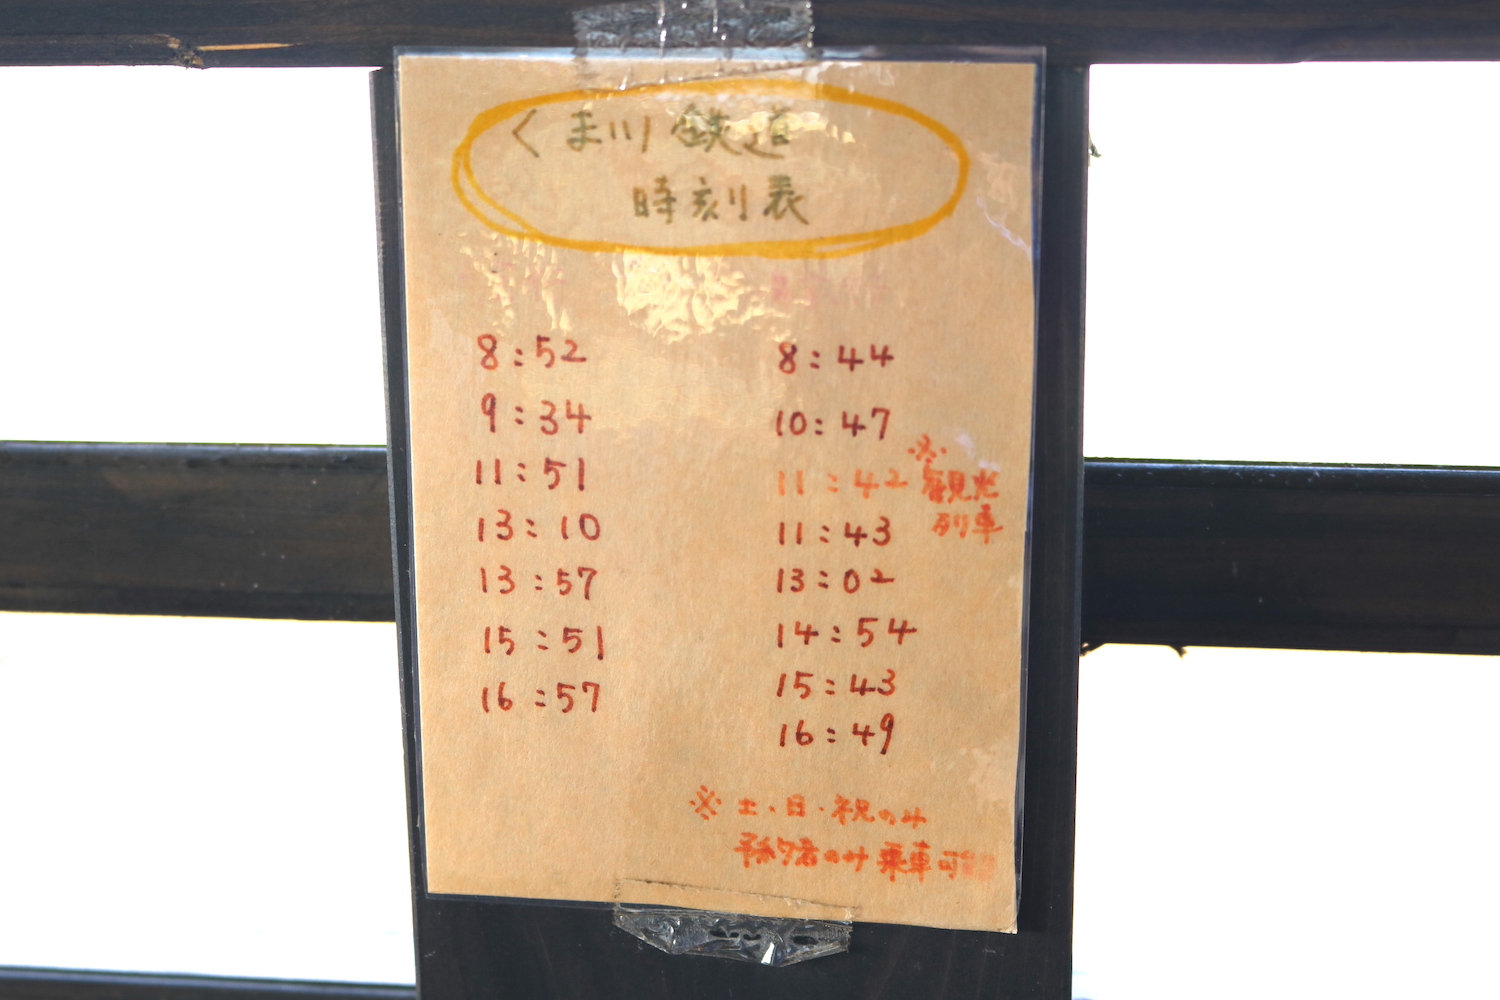 くま川鉄道
時刻表
8:52
9:34
11:51
13:10
13:57
15:51
16:57
8:44
10:47
11:42 ※観光列車
11:43
13:02
14:54
15:43
16:49
※土・日・祝のみ
予約者のみ乗車可能